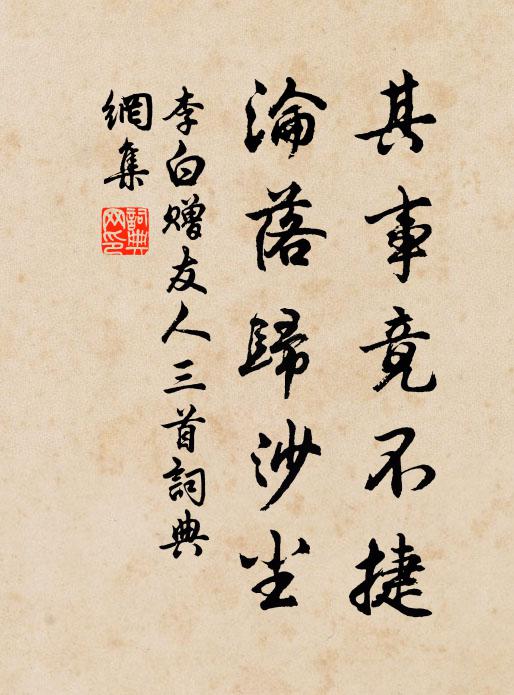 其事竟不捷
淪落歸沙尘
李白赠友人三首詞典
網集
詞典
网印